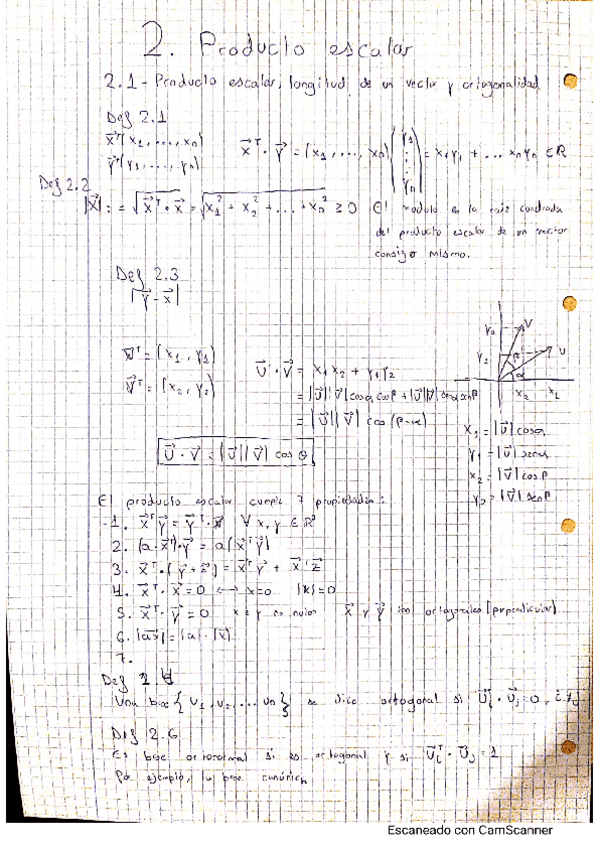 2. Producto escalar
2.1- Producto escalar, longitud de un vector y ortogonalidad
Def 2.1
x⃗ᵀ(x₁, ..., xₙ)
y⃗ᵀ(y₁, ..., yₙ)
x⃗ᵀ · y⃗ = (x₁, ..., xₙ) (y₁ ⋮ yₙ) = x₁y₁ + ... xₙyₙ ∈ ℝ
Def 2.2
|x⃗| := √(x⃗ᵀ · x⃗) = √(x₁² + x₂² + ... + xₙ²) ≥ 0 El modulo es la raiz cuadrada
del producto escalar de un vector
consigo mismo.
Def 2.3
|y⃗ - x⃗|
u⃗ᵀ = (x₁, y₁)
v⃗ᵀ = (x₂, y₂)
u⃗ · v⃗ = x₁x₂ + y₁y₂
= |u⃗||v⃗| cosα cosβ + |u⃗||v⃗| senα senβ
= |u⃗||v⃗| cos(β-α)
u⃗ · v⃗ = |u⃗||v⃗| cos θ
y₂ V
y₁ β U
α
x₂ x₁
x₁ = |u⃗| cosα
y₁ = |u⃗| senα
x₂ = |v⃗| cosβ
y₂ = |v⃗| senβ
El producto escalar cumple 7 propiedades:
1. x⃗ᵀ y⃗ = y⃗ᵀ · x⃗ ∀ x, y ∈ ℝ
2. (a · x⃗ᵀ) · y⃗ = a(x⃗ᵀ y⃗)
3. x⃗ᵀ · (y⃗ + z⃗) = x⃗ᵀ y⃗ + x⃗ᵀ z⃗
4. x⃗ᵀ · x⃗ = 0 ↔ x=0 |x|=0
5. x⃗ᵀ · y⃗ = 0 x e y no nulos x⃗ y y⃗ son ortogonales (perpendicular)
6. |ax⃗| = |a| · |x⃗|
7.
Def
Una base {u₁, u₂, ... uₙ} se dice ortogonal si u⃗ᵢ · u⃗ⱼ = 0,
Def 2.6
Es base ortonormal si es ortogonal y si u⃗ᵢᵀ · u⃗ⱼ = 1
Por ejemplo, la base canónica
Escaneado con CamScanner